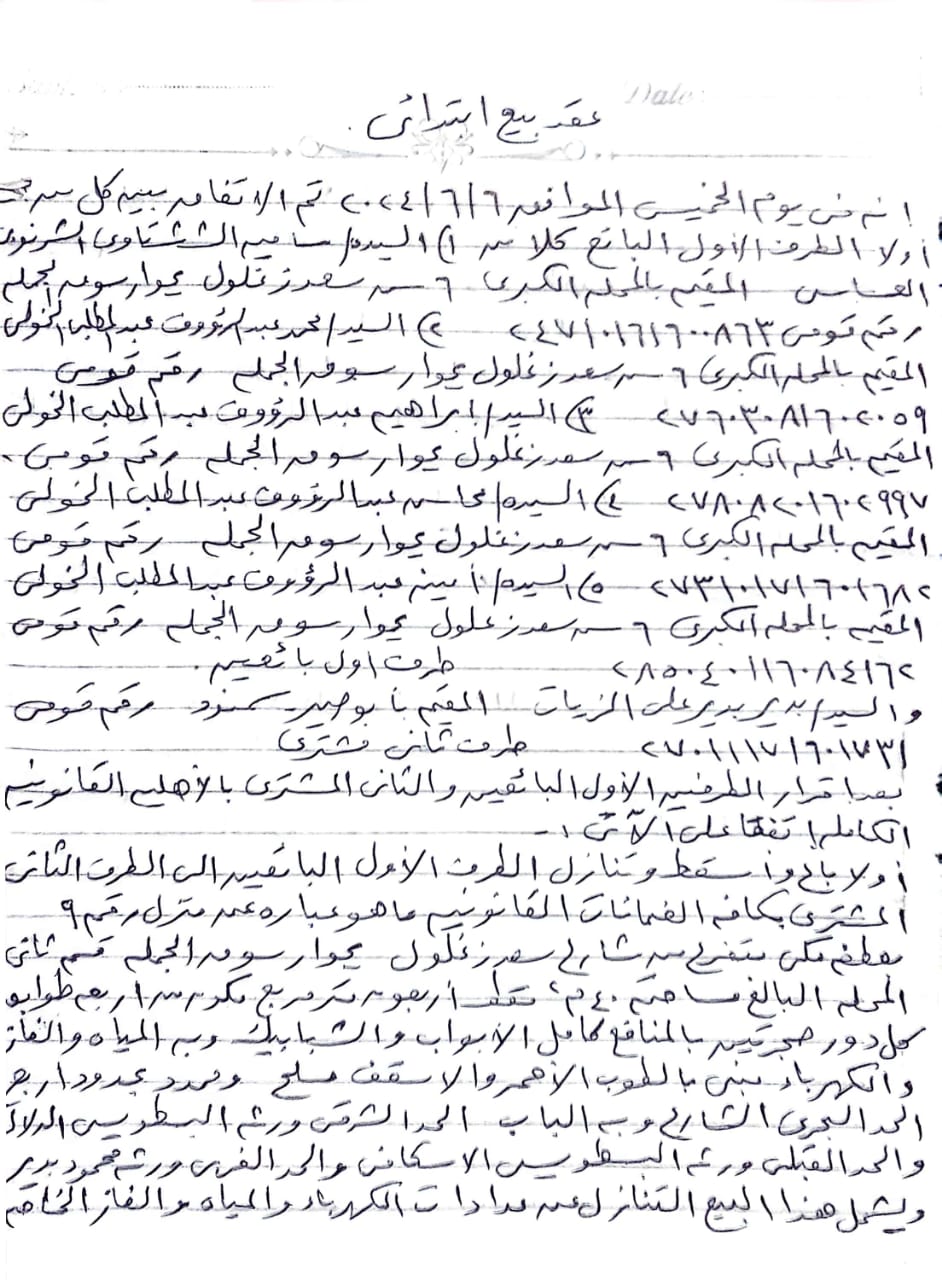 Date:
عقد بيع ابتدائى
انه فى يوم الخميس الموافق ٢٠٢٤/٦/٦ تم الاتفاق بين كل من
أولا الطرف الأول البائع كلا من ١) السيده/ ساميه الششتاوى الشرنوبى
المقيم بالمحله الكبرى ٦ ش سعد زغلول بجوار سوق الجمله
رقم قومى ٢٤٧١٠١٦١٦٠٠٨٦٣ ٢) السيد/ محمد عبد الرؤوف عبد المطلب الخولى
المقيم بالمحله الكبرى ٦ ش سعد زغلول بجوار سوق الجمله رقم قومى
٢٧٦٠٣٠٨١٦٠٢٠٥٩ ٣) السيد/ ابراهيم عبد الرؤوف عبد المطلب الخولى
المقيم بالمحله الكبرى ٦ ش سعد زغلول بجوار سوق الجمله رقم قومى
٢٧٨٠٨٢٠١٦٠٢٩٩٧ ٤) السيده/ محاسن عبد الرؤوف عبد المطلب الخولى
المقيم بالمحله الكبرى ٦ ش سعد زغلول بجوار سوق الجمله رقم قومى
٢٧٣١٠١٧١٦٠١٦٨٢ ٥) السيده/ أمينه عبد الرؤوف عبد المطلب الخولى
المقيم بالمحله الكبرى ٦ ش سعد زغلول بجوار سوق الجمله رقم قومى
٢٨٥٠٤٠١١٦٠٨٤١٦٢ طرف اول بائعين .
والسيد/ بدير بدير على الزيات المقيم بأبوصير - سمنود رقم قومى
٢٧٠١١١٧١٦٠١٧٣١ طرف ثانى مشترى
بعد اقرار الطرفين الأول البائعين والثانى المشترى بالأهليه القانونيه
الكامله إتفقا على الآتى :-
أولا باع وأسقط وتنازل الطرف الأول البائعين الى الطرف الثانى
المشترى بكافه الضمانات القانونيه ما هو عباره عن منزل رقم ٩
بعطفه مكى متفرع من شارع سعد زغلول بجوار سوق الجمله قسم ثانى
المحله البالغ مساحته ٤٠م٢ فقط أربعون متر مربع مكون من اربعه طوابق
كل دور حجرتين بالمنافع كامل الأبواب والشبابيك وبه المياه والغاز
والكهرباء مبنى بالطوب الأحمر والاسقف مسلح ومحدد بحدود اربع
الحد البحرى الشارع وبه الباب الحد الشرقى ورثه البسطويسى
والحد القبلى ورثه البسطويسى الاسكافى والحد الغربى ورثه محمود بدير
ويشمل هذا البيع التنازل عن عدادات الكهرباء والمياه والغاز الخاصه